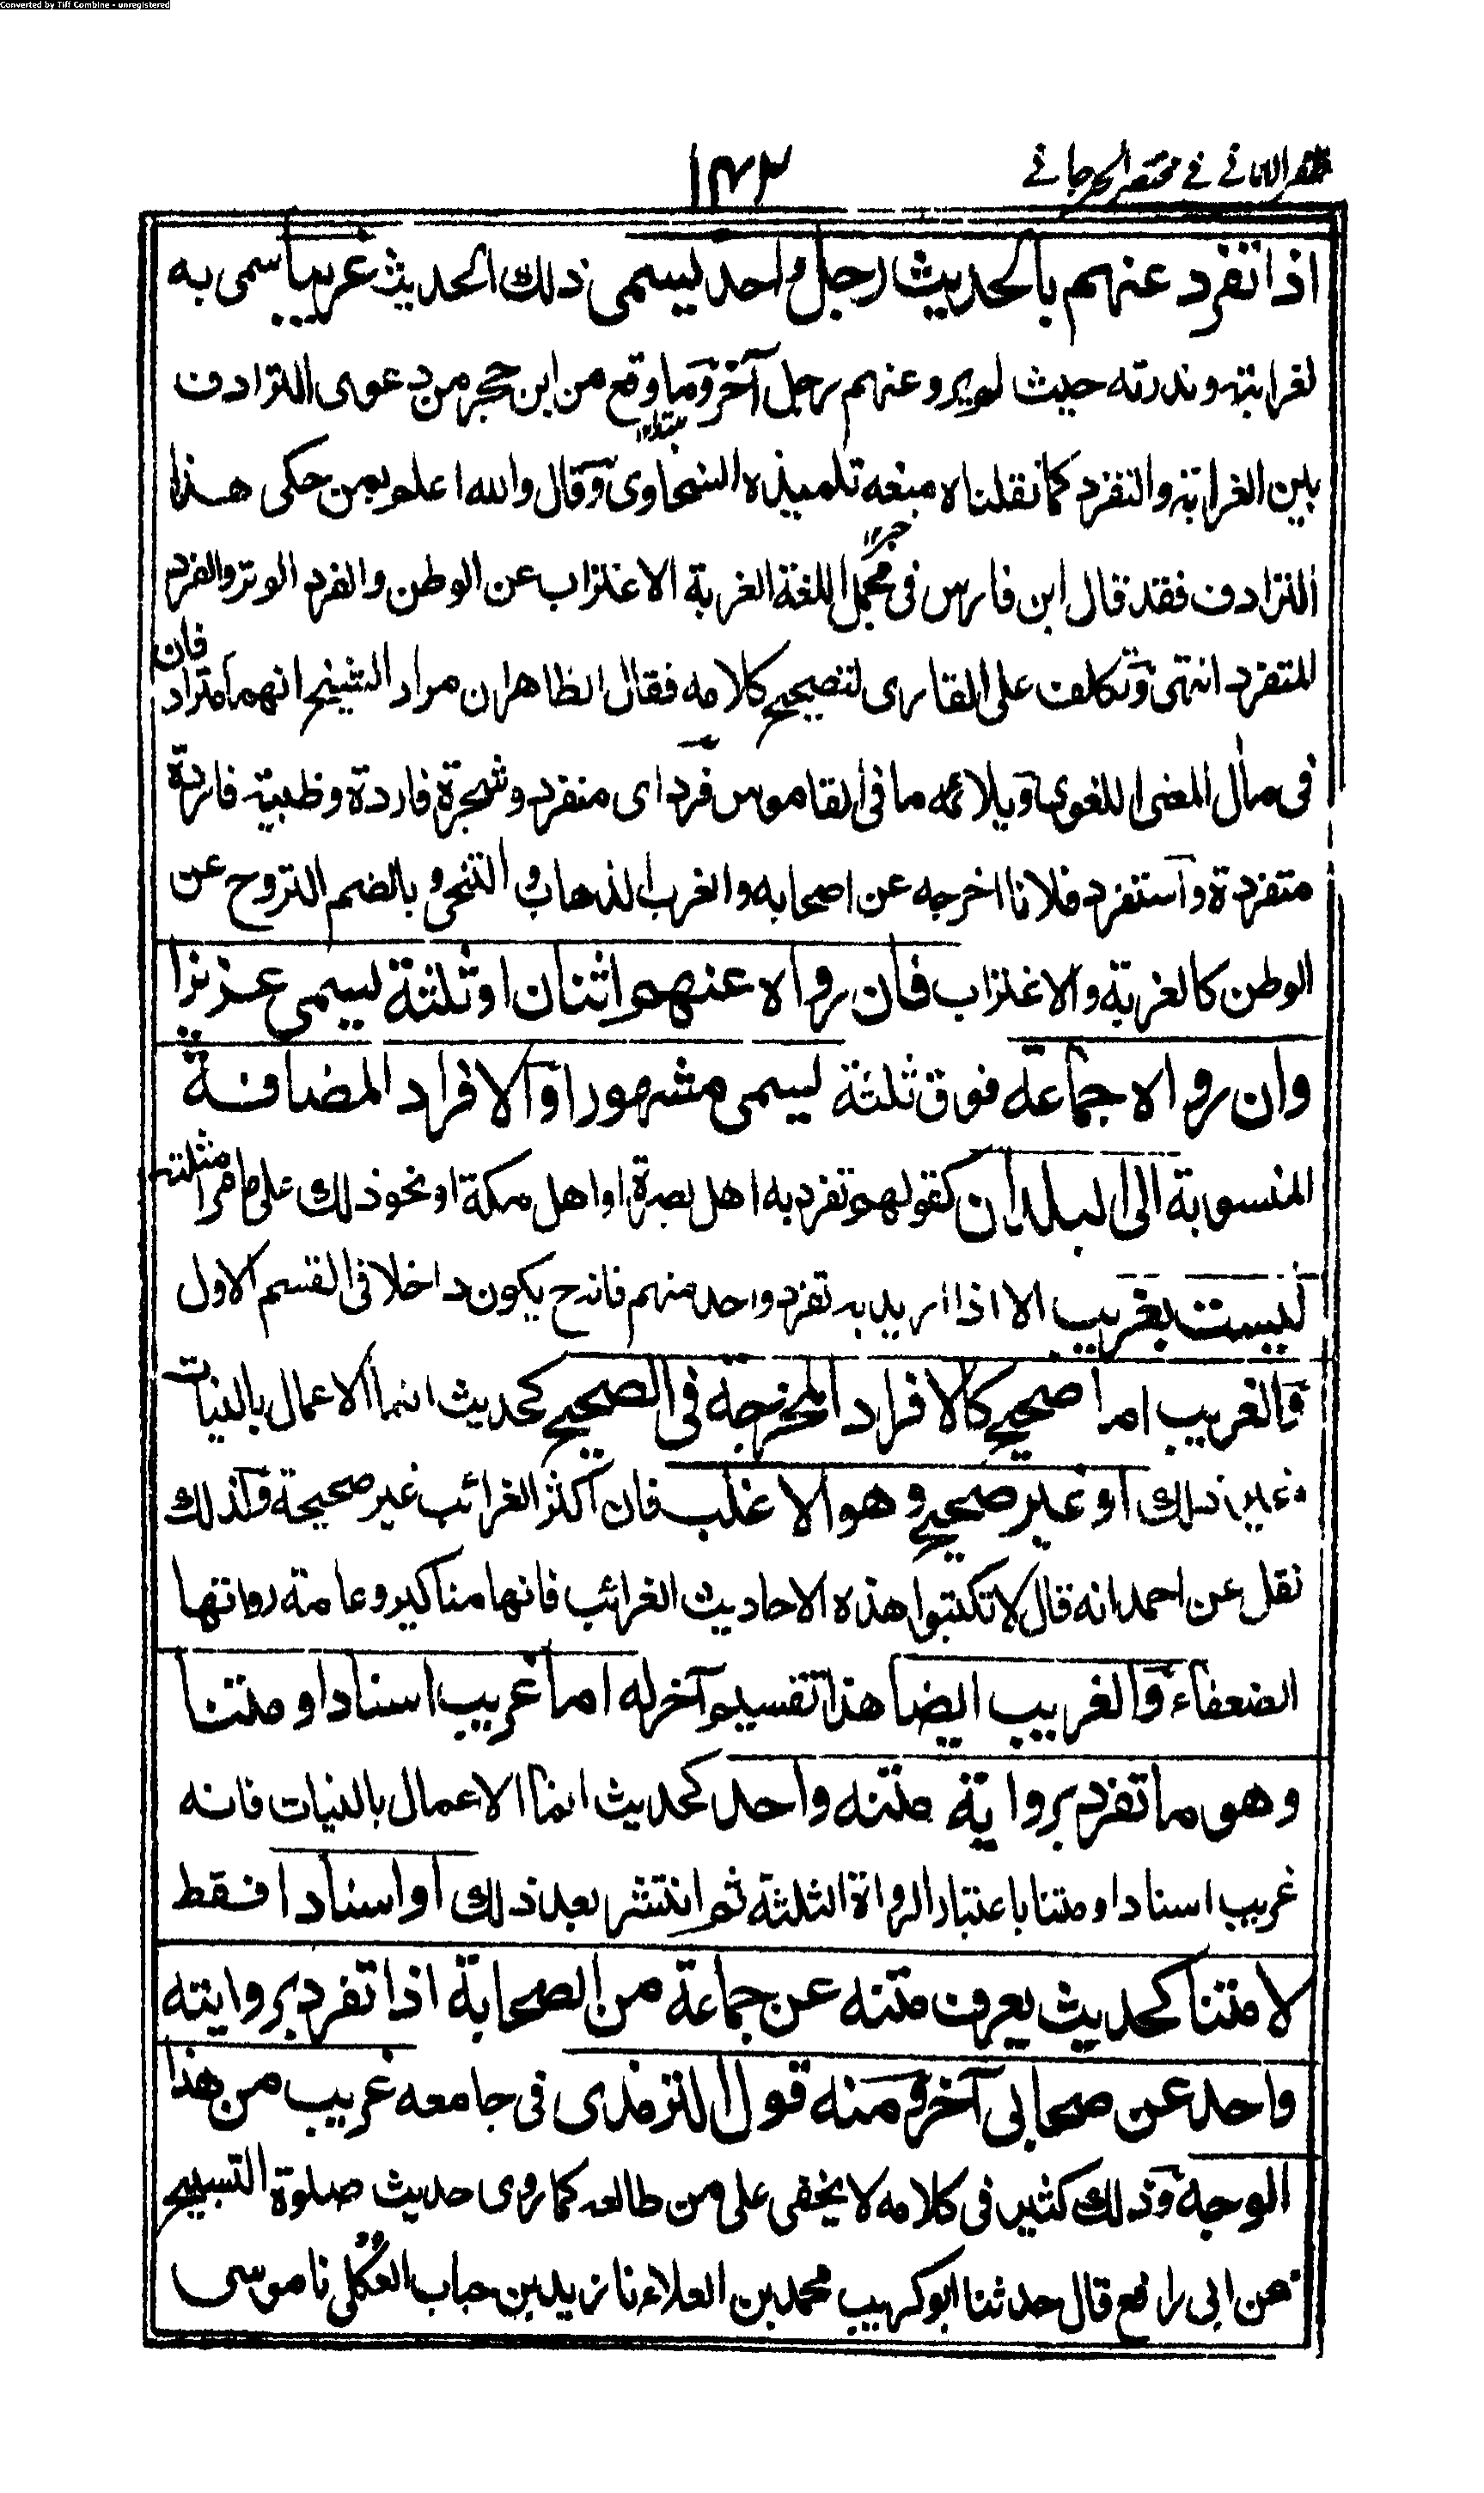 Converted by Tiff Combine - unregistered
ظفر الاماني في مختصر الجرجاني
١٤٣
اذا تفرد عنهم بالحديث رجل واحد يسمى ذلك الحديث غريبا سمى به
لغرابته وندرته حيث لم يرو عنهم رجل آخر وما وقع من ابن حجر من دعوى الترادف
بين الغرابة والتفرد كما نقلناه منعه تلميذه السخاوى وقال والله اعلم بمن حكى هذا
الترادف فقد قال ابن فارس فى مجمل اللغة الغربة الاغتراب عن الوطن والفرد الوتر والفرد
المتفرد انتهى وتكلف على القارى لتصحيح كلامه فقال الظاهر ان مراد الشيخ انهما مترادفان
فى مآل المعنى اللغوى ويلائمه ما فى القاموس فرد اى متفرد وشجرة فاردة وظبية فاردة
متفردة واستفرد فلانا اخرجه عن اصحابه والغرب الذهاب والتنحى وبالضم النزوح عن
الوطن كالغربة والاغتراب فان رواه عنهم اثنان او ثلثة يسمى عزيزا
وان رواه جماعة فوق ثلثة يسمى مشهورا والافراد المضافة
المنسوبة الى البلدان كقولهم تفرد به اهل بصرة او اهل مكة او نحو ذلك على ما مر امثلته
ليست بغريب الا اذا اريد به تفرد واحد منهم فانه ح يكون داخلا فى القسم الاول
والغريب اما صحيح كالافراد المخرجة فى الصحيح كحديث انما الاعمال بالنيات
وغير ذلك او غير صحيح وهو الاغلب فان اكثر الغرائب غير صحيحة ولذلك
نقل عن احمد انه قال لا تكتبوا هذه الاحاديث الغرائب فانها مناكير وعامة رواتها
الضعفاء والغريب ايضا هذا تقسيم آخر له اما غريب اسنادا ومتنا
وهو ما تفرد برواية متنه واحد كحديث انما الاعمال بالنيات فانه
غريب اسنادا ومتنا باعتبار الرواة الثلثة ثم انتشر بعد ذلك او اسنادا فقط
لا متنا كحديث يعرف متنه عن جماعة من الصحابة اذا تفرد بروايته
واحد عن صحابى آخر ومنه قول الترمذى فى جامعه غريب من هذا
الوجه وذلك كثير فى كلامه لا يخفى على من طالعه كما روى حديث صلوة التسبيح
عن ابى رافع قال حدثنا ابو كريب محمد بن العلاء نا زيد بن حباب العكلى نا موسى